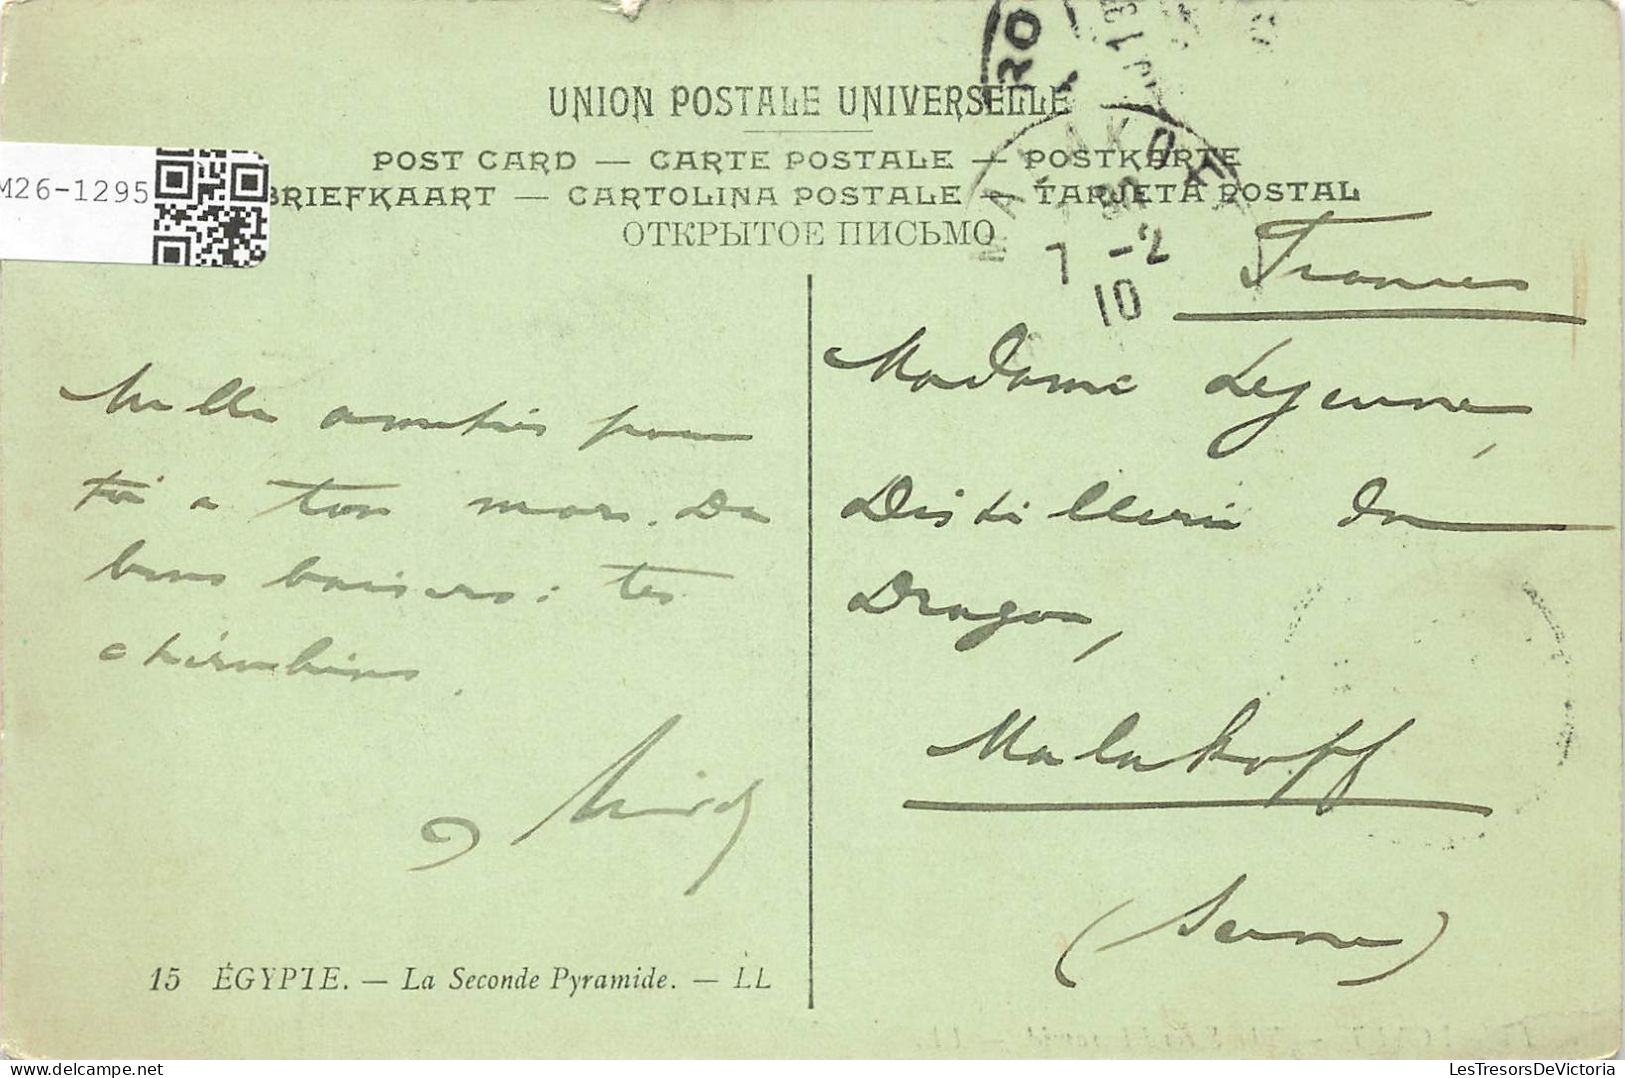 UNION POSTALE UNIVERSELLE
POST CARD — CARTE POSTALE — POSTKARTE
BRIEFKAART — CARTOLINA POSTALE — TARJETA POSTAL
ОТКРЫТОЕ ПИСЬМО
M26-1295
RO
MALAKOFF
7 -2
10
France
Madame Lejeune,
Distillerie du
Dragon,
Malakoff
(Seine)
Mille amitiés pour
toi a ton mari. De
bons baisers: tes
chérubins.
15 ÉGYPTE. — La Seconde Pyramide. — LL
LesTresorsDeVictoria